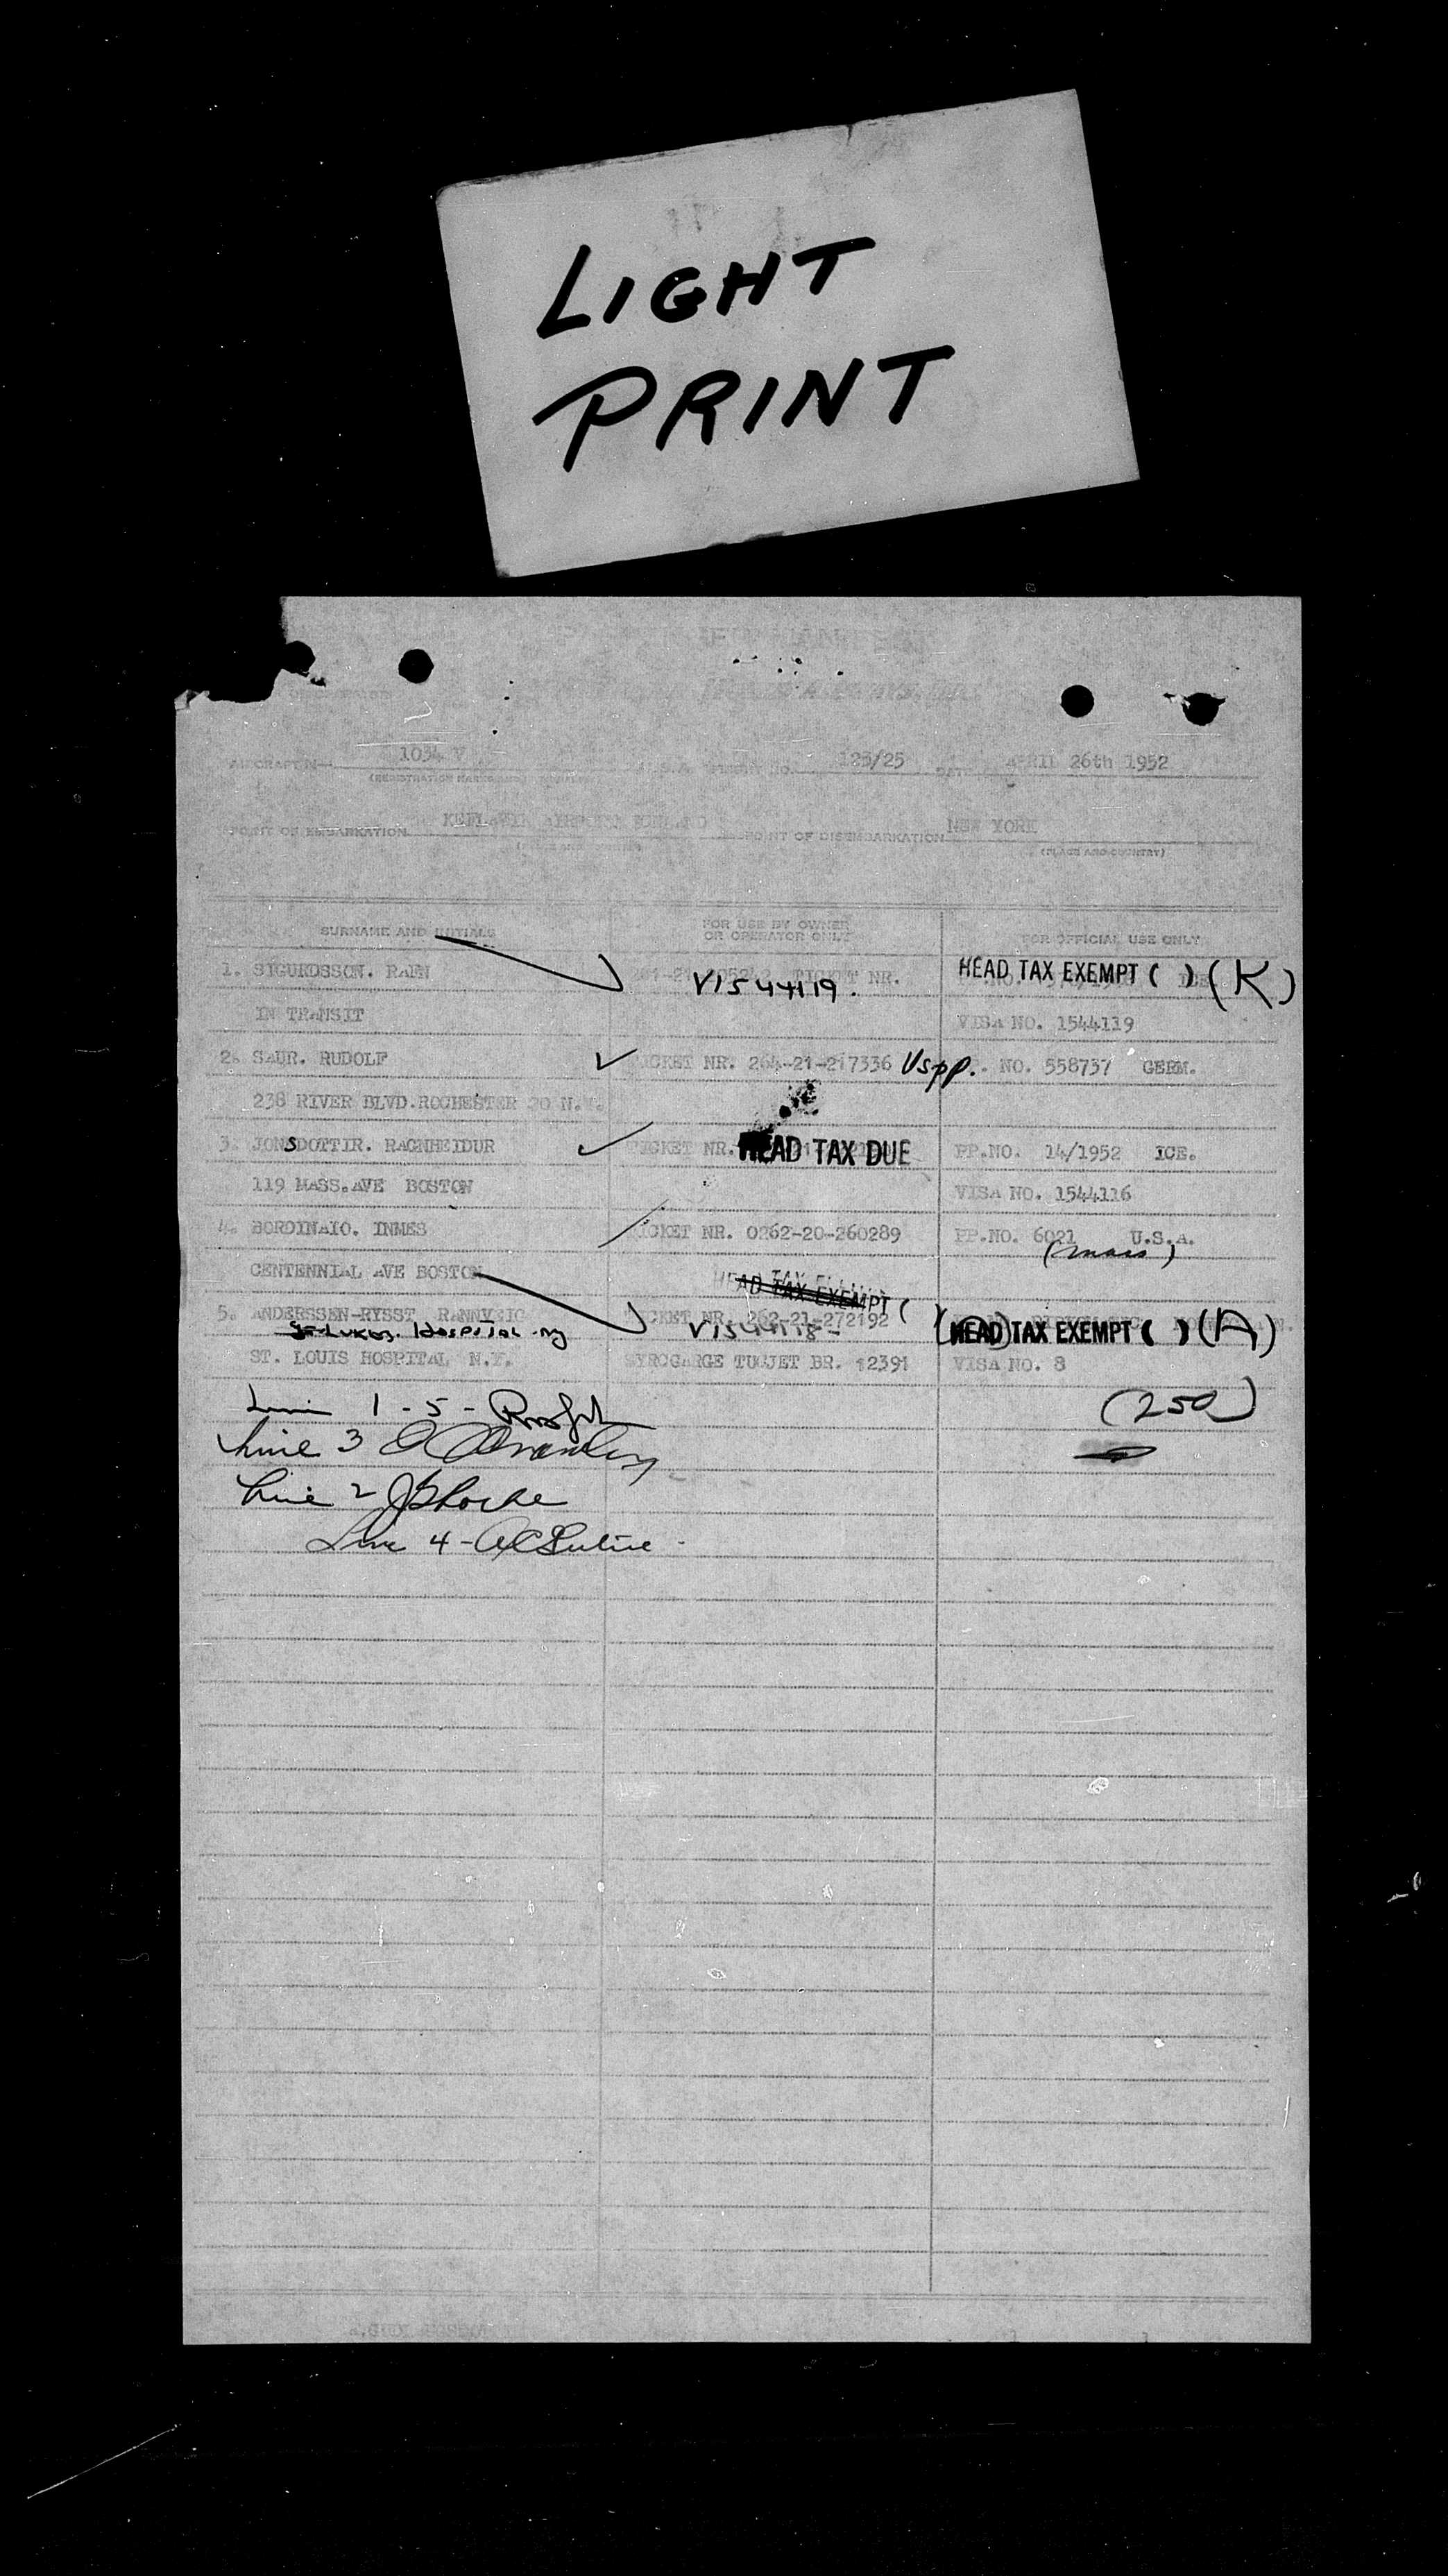 LIGHT
PRINT
1034 V
FLIGHT NO. 125/25 DATE APRIL 26th 1952
POINT OF EMBARKATION KEFLAVIK AIRPORT
POINT OF DISEMBARKATION NEW YORK
(PLACE AND COUNTRY)
SURNAME AND INITIALS
FOR USE BY OWNER
OR OPERATOR ONLY
FOR OFFICIAL USE ONLY
1. SIGURDSSON. RAFN
TICKET NR.
V1544119.
HEAD TAX EXEMPT ( ) (K)
IN TRANSIT
VISA NO. 1544119
2. SAUR. RUDOLF
TICKET NR. 264-21-217336 Uspp. NO. 558737 GERM.
238 RIVER BLVD.ROCHESTER 20 N.Y.
3. JONSDOTTIR. RAGNHEIDUR
TICKET NR. HEAD TAX DUE
PP.NO. 14/1952 ICE.
119 MASS.AVE BOSTON
VISA NO. 1544116
4. BORDINAIO. INMES
TICKET NR. 0262-20-260289
PP.NO. 6021 U.S.A.
(mass)
CENTENNIAL AVE BOSTON
HEAD TAX EXEMPT ( )
5. ANDERSSEN-RYSST RANNVEIG
TICKET NR. 262-21-272192
V1544118-
HEAD TAX EXEMPT ( ) (A)
St Lukes. Hospital ny
ST. LOUIS HOSPITAL N.Y.
BR. 12391
VISA NO. 8
(250)
Line 1 - 5 -
Line 3
Line 2
Line 4 -